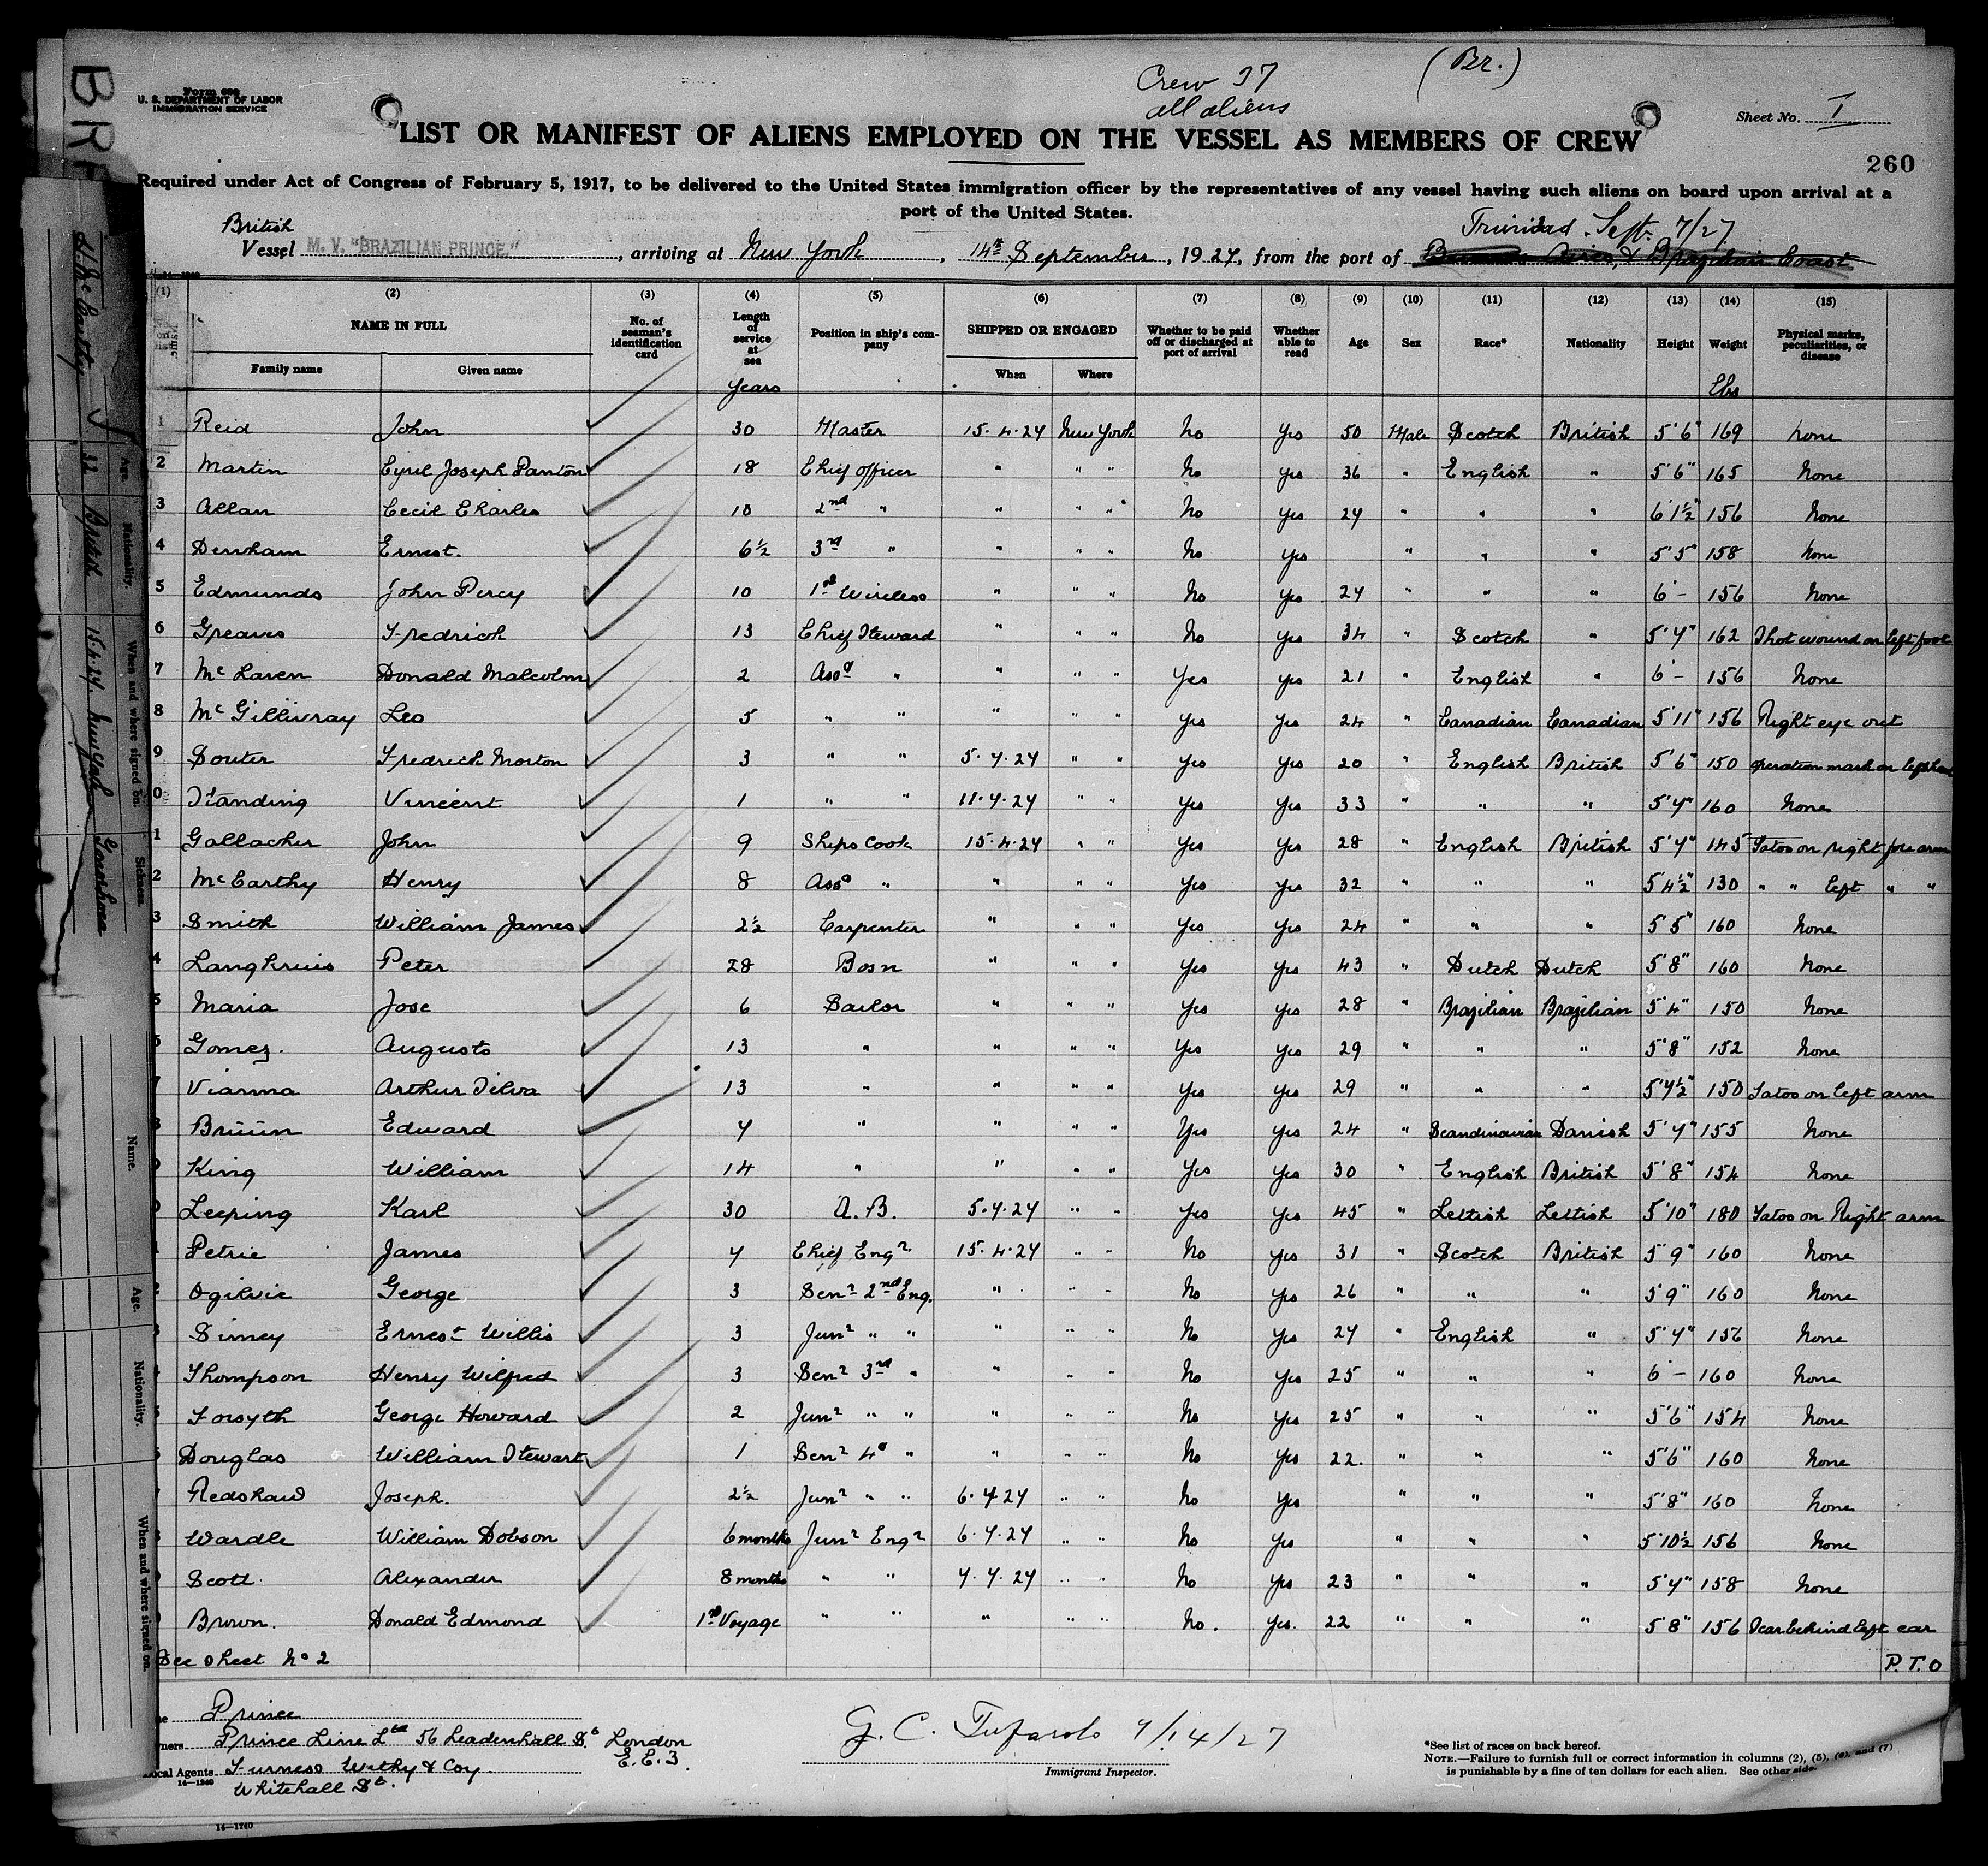 Form 689
U. S. DEPARTMENT OF LABOR
IMMIGRATION SERVICE
Crew 37
all aliens
(Br.)
Sheet No. I
LIST OR MANIFEST OF ALIENS EMPLOYED ON THE VESSEL AS MEMBERS OF CREW
260
Required under Act of Congress of February 5, 1917, to be delivered to the United States immigration officer by the representatives of any vessel having such aliens on board upon arrival at a
port of the United States.
British
Trinidad. Sept. 7/27
Vessel M. V. "BRAZILIAN PRINCE", arriving at New York, 14th September, 1927, from the port of Buenos Aires, & Brazilian Coast
(1) (2) (3) (4) (5) (6) (7) (8) (9) (10) (11) (12) (13) (14) (15)
NAME IN FULL
Family name Given name
No. of seaman's identification card
Length of service at sea
Years
Position in ship's company
SHIPPED OR ENGAGED
When Where
Whether to be paid off or discharged at port of arrival
Whether able to read
Age
Sex
Race*
Nationality
Height
Weight
Lbs
Physical marks, peculiarities, or disease
1 Reid John 30 Master 15.4.27 New York No Yes 50 Male Scotch British 5'6" 169 None
2 Martin Cyril Joseph Panton 18 Chief Officer " " " No Yes 36 " English " 5'6" 165 None
3 Allan Cecil Charles 10 2nd " " " " No Yes 27 " " " 6'1½" 156 None
4 Denham Ernest. 6½ 3rd " " " " No Yes " " " 5'5" 158 None
5 Edmunds John Percy 10 1st Wireless " " " No Yes 27 " " " 6'- 156 None
6 Greaves Fredrich 13 Chief Steward " " " No Yes 34 " Scotch " 5'7" 162 Shot wound on left foot
7 McLaren Donald Malcolm 2 Asst " " " " Yes Yes 21 " English " 6'- 156 None
8 McGillivray Leo 5 " " " " " Yes Yes 24 " Canadian Canadian 5'11" 156 Right eye out
9 Souter Fredrich Morton 3 " " 5.7.27 " " Yes Yes 20 " English British 5'6" 150 Operation mark on left
0 Standing Vincent 1 " " 11.7.27 " " Yes Yes 33 " " " 5'7" 160 None
1 Gallacher John 9 Ships Cook 15.4.27 " " Yes Yes 28 " English British 5'7" 145 Tatoo on right fore arm
2 McCarthy Henry 8 Asst " " " " Yes Yes 32 " " " 5'4½" 130 " " left " "
3 Smith William James 2½ Carpenter " " " Yes Yes 24 " " " 5'5" 160 None
4 Langkruis Peter 28 Bosn " " " Yes Yes 43 " Dutch Dutch 5'8" 160 None
5 Maria Jose 6 Sailor " " " Yes Yes 28 " Brazilian Brazilian 5'4" 150 None
6 Gomez. Augusto 13 " " " " Yes Yes 29 " " " 5'8" 152 None
7 Vianna Arthur Silva 13 " " " " Yes Yes 29 " " " 5'7½" 150 Tatoo on left arm
8 Brüün Edward 7 " " " " Yes Yes 24 " Scandinavian Danish 5'7" 155 None
King William 14 " " " " Yes Yes 30 " English British 5'8" 154 None
0 Leeping Karl 30 A.B. 5.7.27 " " Yes Yes 45 " Lettish Lettish 5'10" 180 Tatoo on Right arm
Petrie James 7 Chief Engr 15.4.27 " " No Yes 31 " Scotch British 5'9" 160 None
Ogilvie George 3 Senr 2nd Eng. " " " No Yes 26 " " " 5'9" 160 None
Simey Ernest Willis 3 Junr " " " " " No Yes 27 " English " 5'7" 156 None
Thompson Henry Wilfred 3 Senr 3rd " " " " No Yes 25 " " " 6'- 160 None
Forsyth George Howard 2 Junr " " " " " No Yes 25 " " " 5'6" 154 None
Douglas William Stewart 1 Senr 4th " " " " No Yes 22. " " " 5'6" 160 None
Redshaw Joseph. 2½ Junr " " 6.7.27 " " No Yes " " " 5'8" 160 None
Wardle William Dobson 6 months Junr Engr 6.7.27 " " No Yes " " " 5'10½ 156 None
Scott. Alexander 8 months " " 7.7.27 " " No Yes 23 " " " 5'7" 158 None
Brown. Donald Edmond 1st Voyage " " " " " No. Yes. 22 " " " 5'8" 156 Scar behind left ear
See sheet No 2 P.T.O
Prince
Prince Line Ltd 56 Leadenhall St. London
E.C.3
Local Agents Furness Withy & Coy.
14—1240
Whitehall St.
7/14/27
Immigrant Inspector.
*See list of races on back hereof.
NOTE.—Failure to furnish full or correct information in columns (2), (5), (6), and (7)
is punishable by a fine of ten dollars for each alien. See other side.
14—1240
H. McCarthy 32 British 15.4.27. New York
Age. Nationality. When and where signed on. Sickness.
Name. Age. Nationality. When and where signed on.